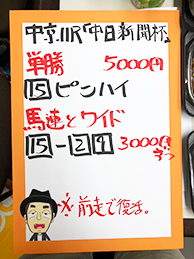 中京11R「中日新聞杯」
単勝 5000円
15 ピンハイ
馬連とワイド
15-2 9 3000円
ずつ
※前走で復活。